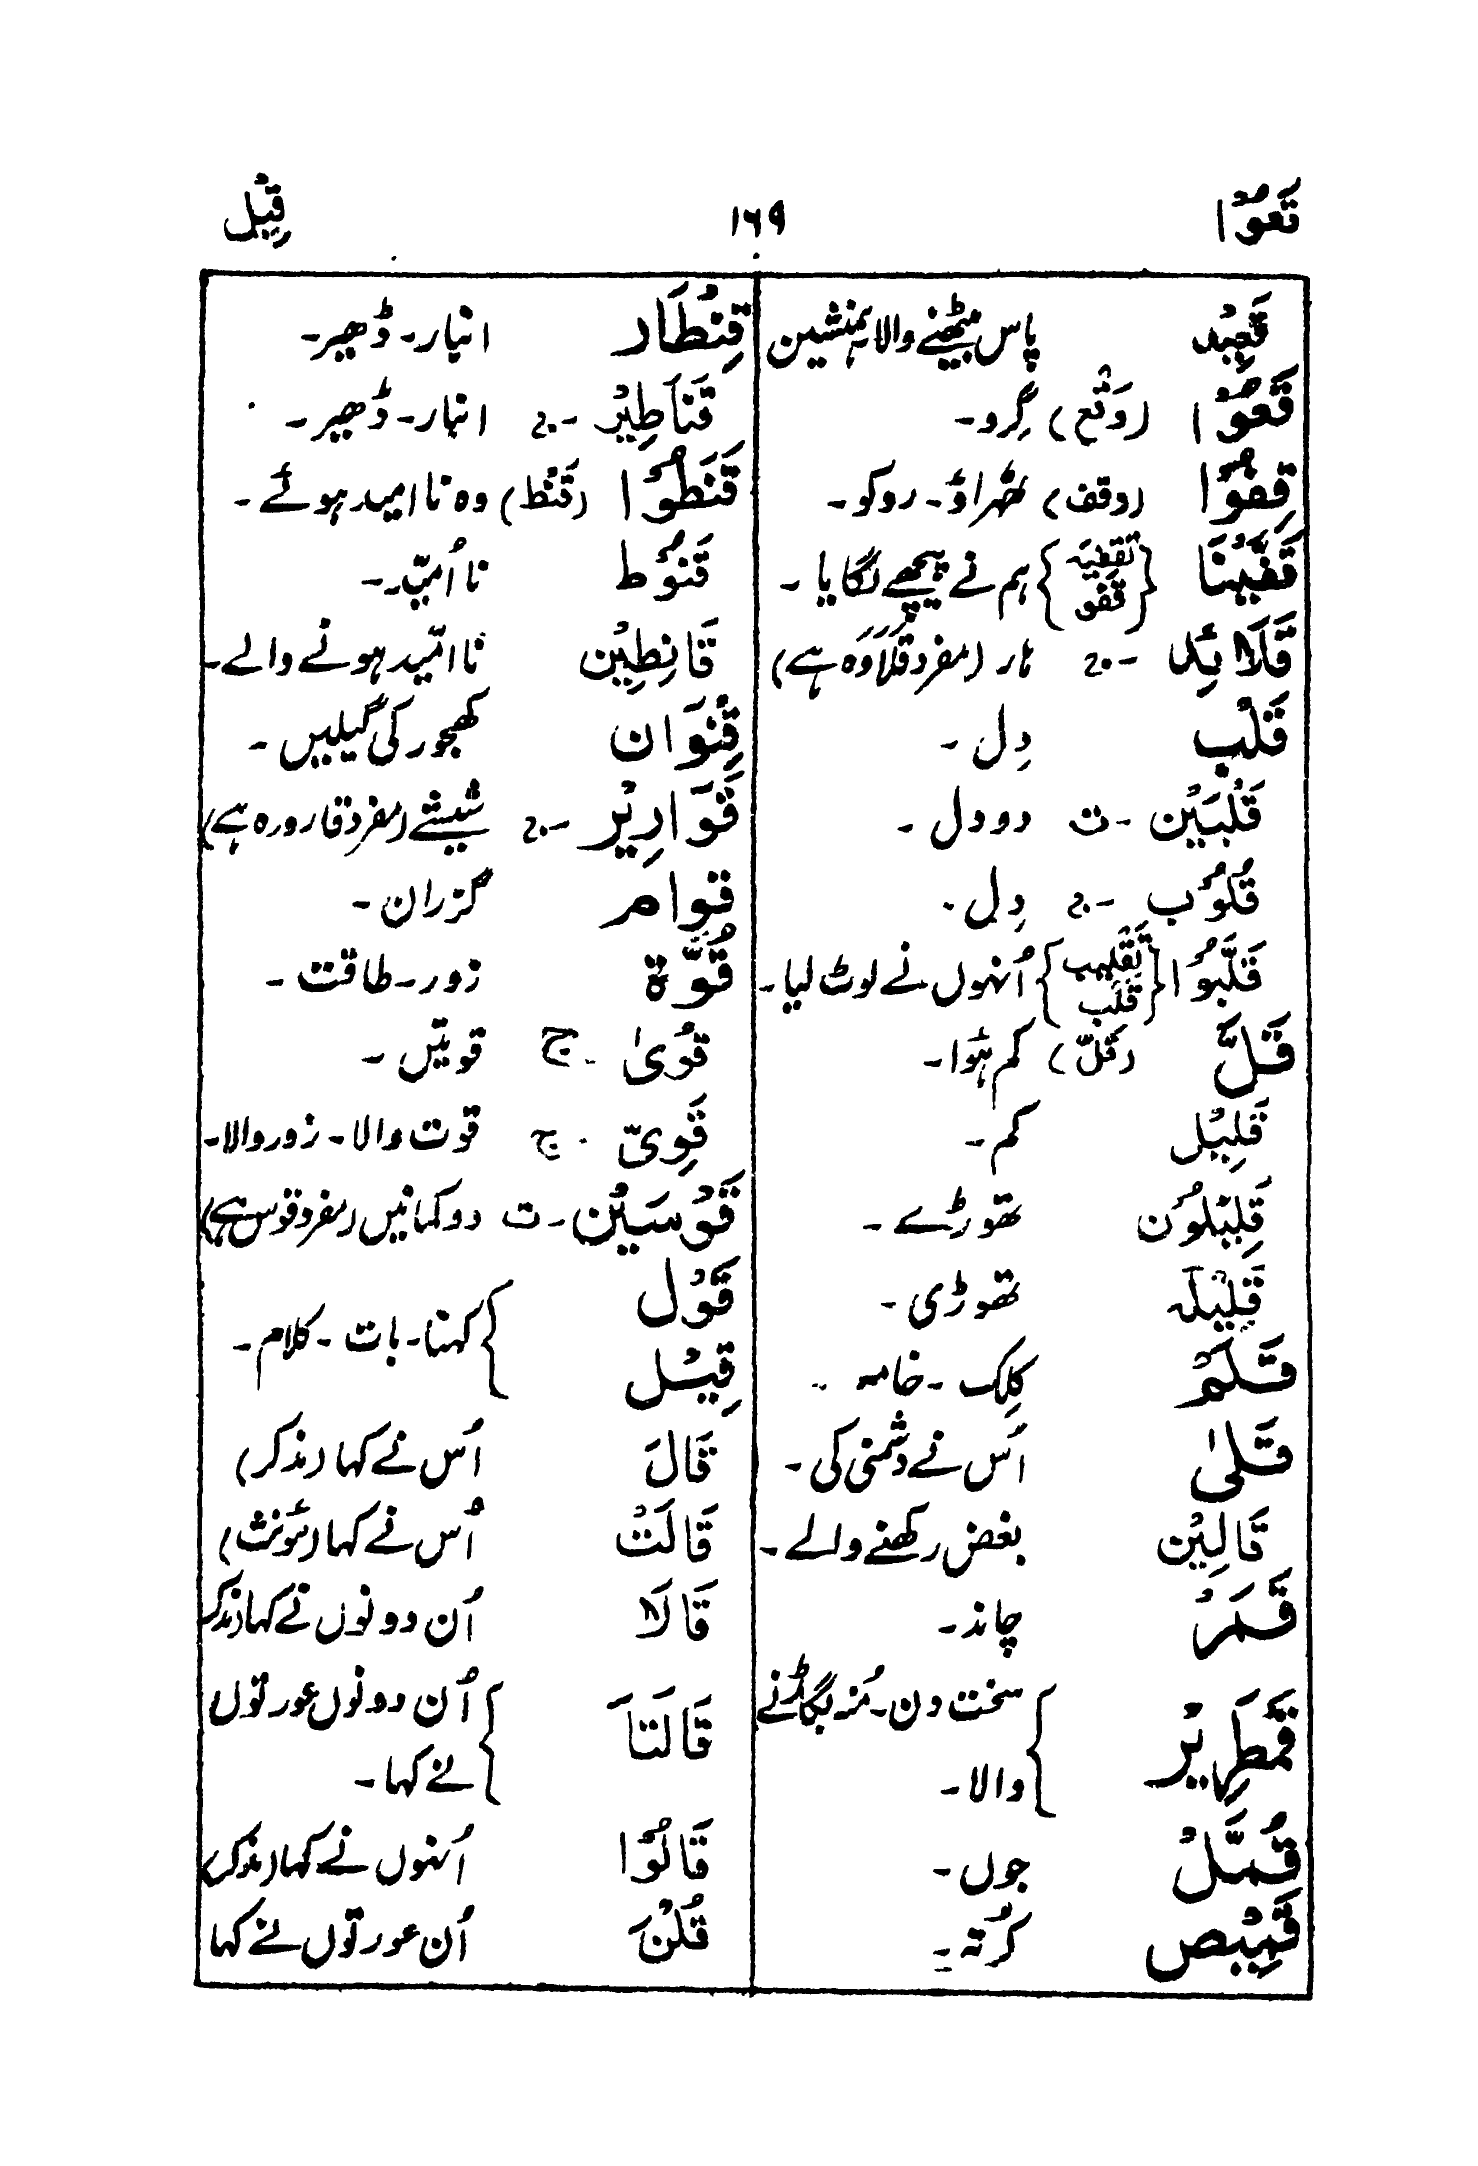 قَعُوْا ۱۶۹ قِیْل
قَعِیْد پاس بیٹھنے والا ہمنشین
قَعُوْا (وَقَع) گِرو۔
قِفُوْا (وقف) ٹھراؤ۔ روکو۔
قَفَّیْنَا {تَقفِیَہ قفو} ہم نے پیچھے لگایا ۔
قَلَائِد ۔ج ہار (مفرد قلاوَہ ہے)
قَلْب دِل ۔
قَلْبَیْن ۔ت دو دل ۔
قُلُوْب ۔ج دِل ۔
قَلَّبُوْا {تَقلِیب قَلَب} اُنہوں نے لوٹ لیا۔
قَلَّ (قَلّ) کم ہُوا۔
قَلِیْل کم۔
قَلِیْلُوْن تھوڑے ۔
قَلِیْلَہ تھوڑی ۔
قَلَمْ کِلک ۔ خامہ ۔
قَلٰی اُس نے دشمنی کی ۔
قَالِیْن بغض رکھنے والے ۔
قَمَرْ چاند۔
قَمْطَرِیْر {سخت دن۔ مُنہ بگاڑنے
والا۔
قُمَّلْ جوں ۔
قَمِیْص کُرتہ ۔
قِنْطَار انبار۔ ڈھیر۔
قَنَاطِیْر ۔ج انبار۔ ڈھیر۔
قَنَطُوْا (قَنْط) وہ ناامید ہوئے ۔
قَنُوْط نااُمیّد۔
قَانِطِیْن ناامّید ہونے والے۔
قِنْوَان کھجور کی گیلیں ۔
قَوَارِیْر ۔ج شیشے (مفرد قارورہ ہے)
قوام گزران ۔
قُوَّۃ زور۔ طاقت ۔
قُوٰی ۔ ج قوتیں ۔
قَوِیّ ۔ ج قوت والا۔ زور والا۔
قَوْسَیْن ۔ت دو کمانیں (مفرد قوس ہے)
قَوْل
قِیْل {کہنا۔ بات ۔ کلام ۔
قَالَ اُس نے کہا (مذکر)
قَالَتْ اُس نے کہا (مؤنث)
قَالَا اُن دونوں نے کہا (مذکر
قَالَتَا {اُن دونوں عورتوں
نے کہا۔
قَالُوْا اُنہوں نے کہا (مذکر)
قُلْنَ اُن عورتوں نے کہا